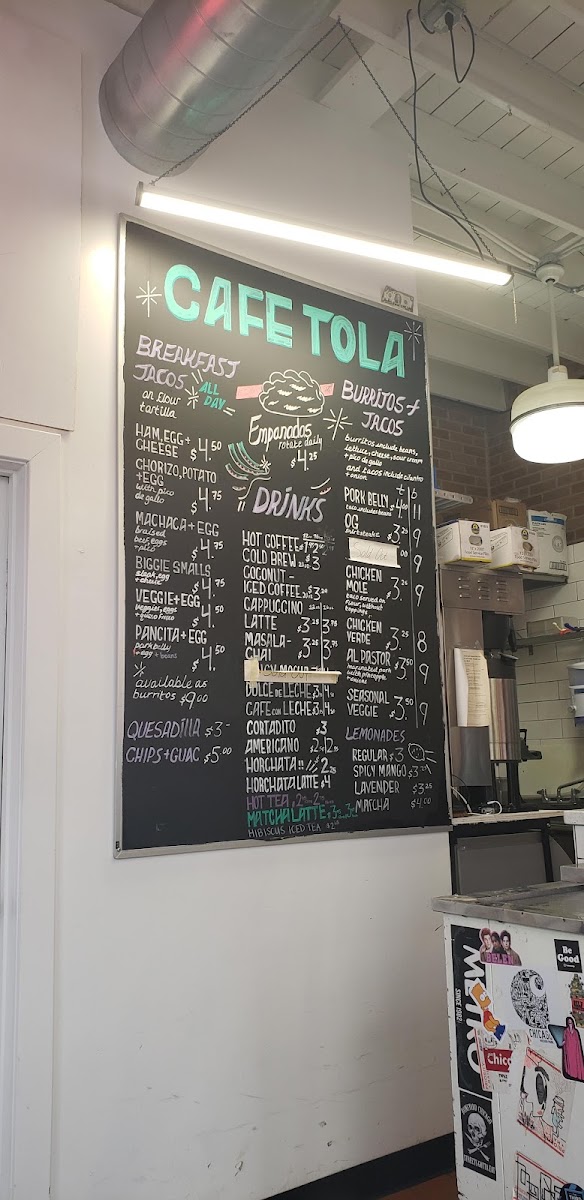 CAFE TOLA
BREAKFAST
TACOS
ALL
DAY
on flour
tortilla
HAM, EGG +
CHEESE $4.50
CHORIZO, POTATO
+ EGG
with pico
de gallo $4.75
MACHACA + EGG
braised
beef, eggs
+ pico $4.75
BIGGIE SMALLS
steak, egg
+ cheese $4.75
VEGGIE + EGG
veggies, eggs
+ queso fresco $4.50
PANCITA + EGG
pork belly
+ egg + beans $4.50
available as
burritos $9.00
QUESADILLA $3-
CHIPS + GUAC $5.00
Empanadas
rotate daily
$4.25
DRINKS
HOT COFFEE
COLD BREW $3
COCONUT-
ICED COFFEE $3.50
CAPPUCCINO
LATTE $3.25 3.75
MASALA-
CHAI $3.25 3.75
DULCE DE LECHE
CAFE CON LECHE
CORTADITO $3
AMERICANO
HORCHATA !! $2.25
HORCHATA LATTE $4
HOT TEA
MATCHA LATTE
HIBISCUS ICED TEA
BURRITOS +
TACOS
burritos include beans,
lettuce, cheese, sour cream
+ pico de gallo
and tacos include cilantro
+ onion
t b
PORK BELLY 4.00 11
taco includes beans
OG $3.25 9
skirt steak
Sold Out
9
CHICKEN
MOLE $3.25 9
taco served on
flour, without
toppings
CHICKEN
VERDE $3.25 8
AL PASTOR $3.50 9
marinated pork
with pineapple
+ onions
SEASONAL
VEGGIE $3.50 9
LEMONADES
REGULAR $3
SPICY MANGO
LAVENDER $3.25
MATCHA $4.00
METRO
SINCE 1982
Be
Good
CHICAGO
Chica